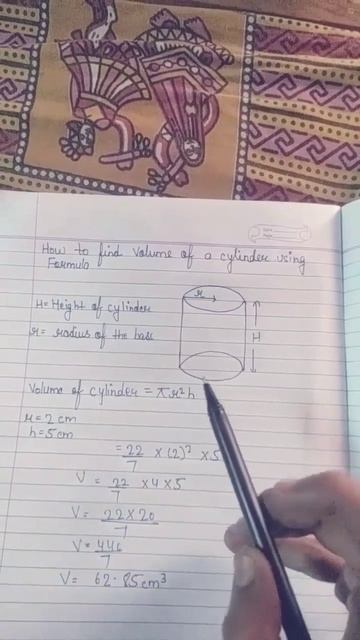 How to find Volume of a cylinder using
Formula
H = Height of cylinder
r = radius of the base
r
H
Volume of cylinder = πr²h
r = 2 cm
h = 5 cm
= 22/7 × (2)² × 5
V = 22/7 × 4 × 5
V = 22 × 20/7
V = 440/7
V = 62.85 cm³